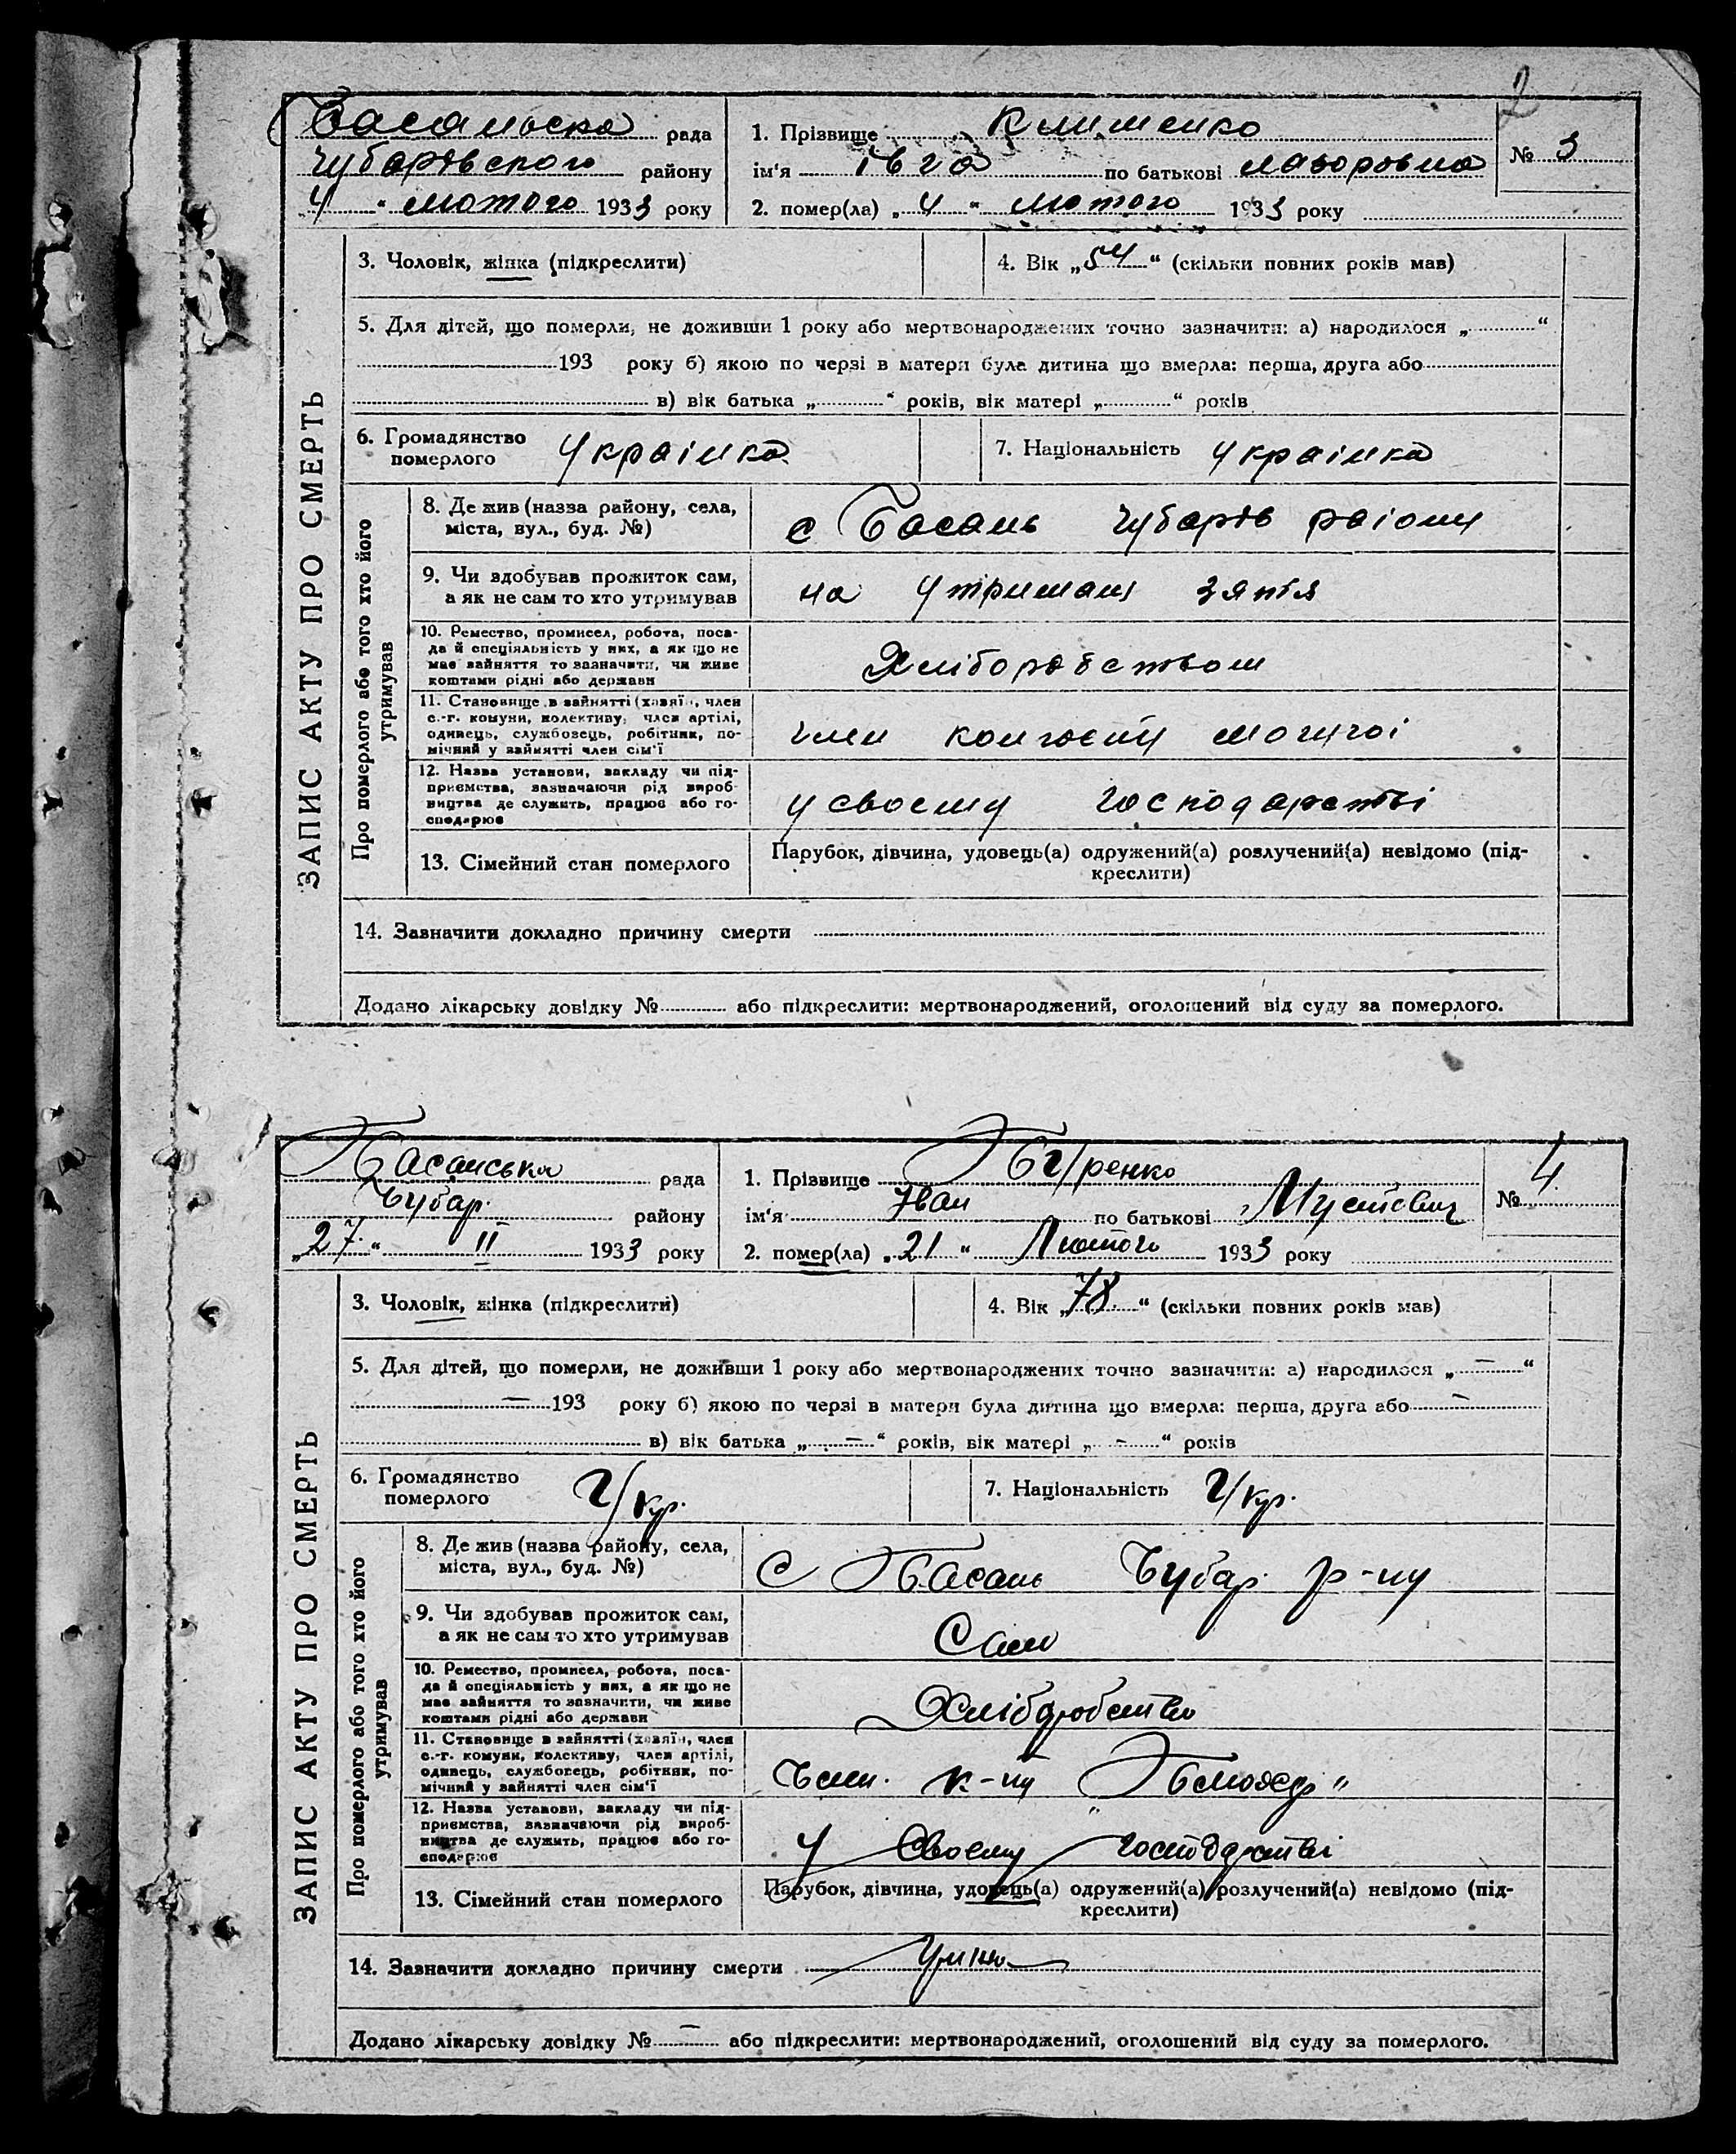 2
Басанська рада
Чубарівского району
„4“ лютого 1933 року
1. Прізвище Клименко
ім'я Івга по батькові Лазоровна
№ 3
2. помер(ла) „4“ лютого 1933 року
ЗАПИС АКТУ ПРО СМЕРТЬ
3. Чоловік, жінка (підкреслити)
4. Вік „54“ (скільки повних років мав)
5. Для дітей, що померли, не доживши 1 року або мертвонароджених точно зазначити: а) народилося „ “
193 року б) якою по черзі в матери була дитина що вмерла: перша, друга або
в) вік батька „ “ років, вік матері „ “ років
6. Громадянство
померлого
Українка
7. Національність Українка
Про померлого або того хто його
утримував
8. Де жив (назва району, села,
міста, вул., буд. №)
с Басань Чубарів раіону
9. Чи здобував прожиток сам,
а як не сам то хто утримував
на утриман зятя
10. Ремество, промисел, робота, поса-
да й спеціяльність у них, а як що не
має зайняття то зазначити, чи живе
коштами рідні або держави
Хліборобством
11. Становище в зайнятті (хазяїн, член
с.-г. комуни, колективу, член артілі,
одинець, службовець, робітник, по-
мічний у зайнятті член сім'ї
член
12. Назва установи, закладу чи під-
приємства, зазначаючи рід вироб-
ництва де служить, працює або го-
сподарює
у своему господарстві
13. Сімейний стан померлого
Парубок, дівчина, удовець(а) одружений(а) розлучений(а) невідомо (під-
креслити)
14. Зазначити докладно причину смерти
Додано лікарську довідку № або підкреслити: мертвонароджений, оголошений від суду за померлого.
Басанська рада
Чубар. району
„27.“ II 1933 року
1. Прізвище
ім'я Іван по батькові
№ 4
2. помер(ла) „21“ Лютого 1933 року
ЗАПИС АКТУ ПРО СМЕРТЬ
3. Чоловік, жінка (підкреслити)
4. Вік „78.“ (скільки повних років мав)
5. Для дітей, що померли, не доживши 1 року або мертвонароджених точно зазначити: а) народилося „—“
— 193 року б) якою по черзі в матери була дитина що вмерла: перша, друга або —
в) вік батька „—“ років, вік матері „—“ років
6. Громадянство
померлого
Укр.
7. Національність Укр.
Про померлого або того хто його
утримував
8. Де жив (назва району, села,
міста, вул., буд. №)
С Басань Чубар. р-ну
9. Чи здобував прожиток сам,
а як не сам то хто утримував
Сам
10. Ремество, промисел, робота, поса-
да й спеціяльність у них, а як що не
має зайняття то зазначити, чи живе
коштами рідні або держави
Хліборобство
11. Становище в зайнятті (хазяїн, член
с.-г. комуни, колективу, член артілі,
одинець, службовець, робітник, по-
мічний у зайнятті член сім'ї
Член. к-ну
12. Назва установи, закладу чи під-
приємства, зазначаючи рід вироб-
ництва де служить, працює або го-
сподарює
У Своему господарстві
13. Сімейний стан померлого
Парубок, дівчина, удовець(а) одружений(а) розлучений(а) невідомо (під-
креслити)
14. Зазначити докладно причину смерти
Додано лікарську довідку № — або підкреслити: мертвонароджений, оголошений від суду за померлого.